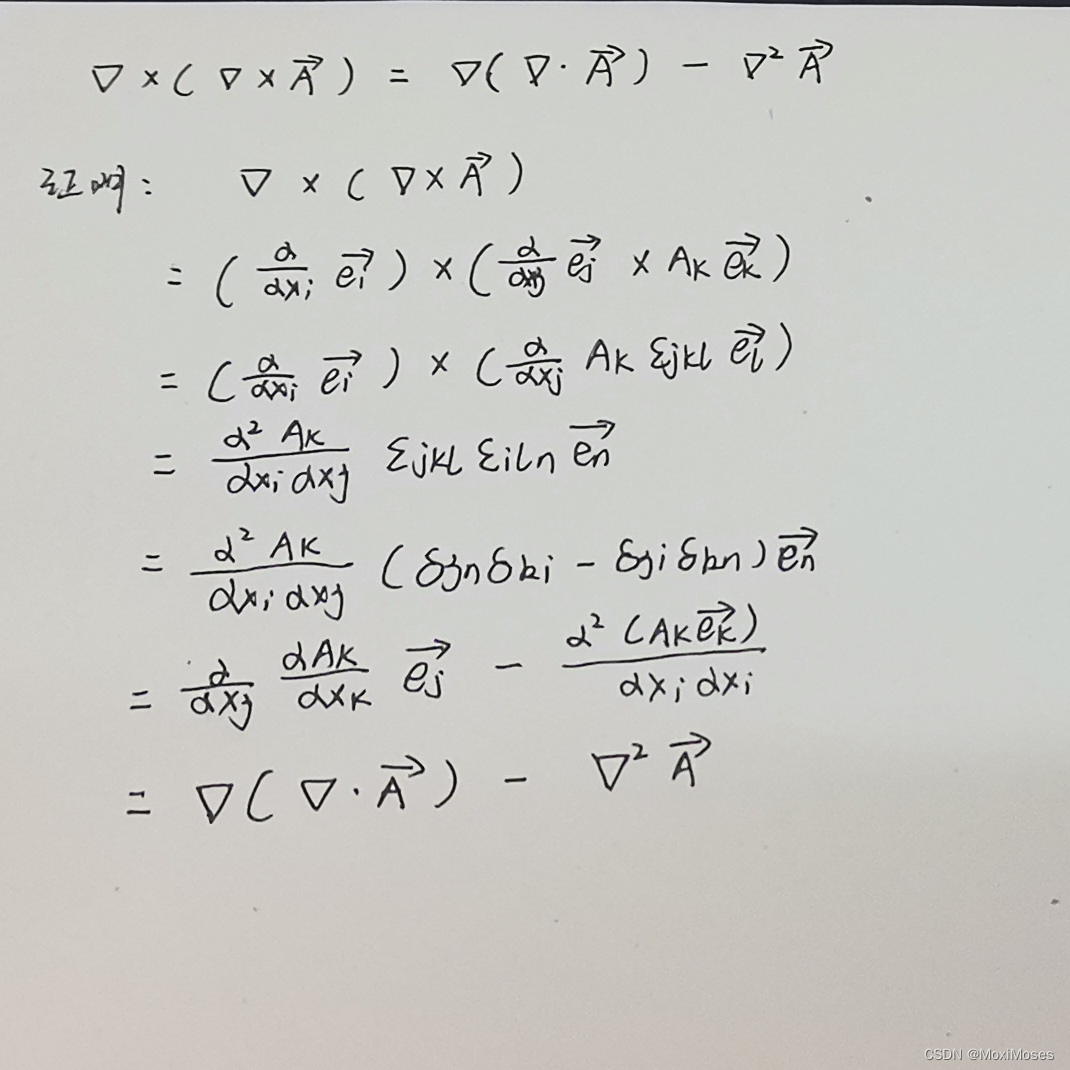 ∇ × ( ∇ × A⃗ ) = ∇( ∇ · A⃗ ) − ∇² A⃗
证明: ∇ × ( ∇ × A⃗ )
= ( ∂/∂xᵢ e⃗ᵢ ) × ( ∂/∂xⱼ e⃗ⱼ × Aₖ e⃗ₖ )
= ( ∂/∂xᵢ e⃗ᵢ ) × ( ∂/∂xⱼ Aₖ εⱼₖₗ e⃗ₗ )
= ∂² Aₖ / ∂xᵢ ∂xⱼ εⱼₖₗ εᵢₗₙ e⃗ₙ
= ∂² Aₖ / ∂xᵢ ∂xⱼ ( δⱼₙ δₖᵢ − δⱼᵢ δₖₙ ) e⃗ₙ
= ∂/∂xⱼ ∂Aₖ/∂xₖ e⃗ⱼ − ∂² (Aₖ e⃗ₖ) / ∂xᵢ ∂xᵢ
= ∇( ∇ · A⃗ ) − ∇² A⃗
CSDN @MoxiMoses